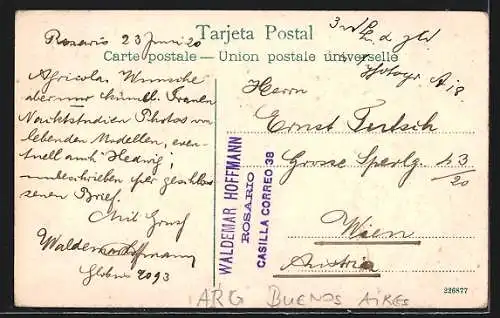 Tarjeta Postal
Carte postale — Union postale universelle
Rosario 23 Juni 20
Agricolas Wunsche
aber nur Frauen
Nacktstudien Photos von
lebenden Modellen, even-
tuell auch "Hedwig",
unbeschrieben per geschlos-
senen Brief.
Mit Gruss
Waldemar Hoffmann
Globus 2093
WALDEMAR HOFFMANN
ROSARIO
CASILLA CORREO 38
Herrn
Ernst
Grosse Sperlg. 43
20
Wien
Austria
226877
ARG BUENOS AIRES